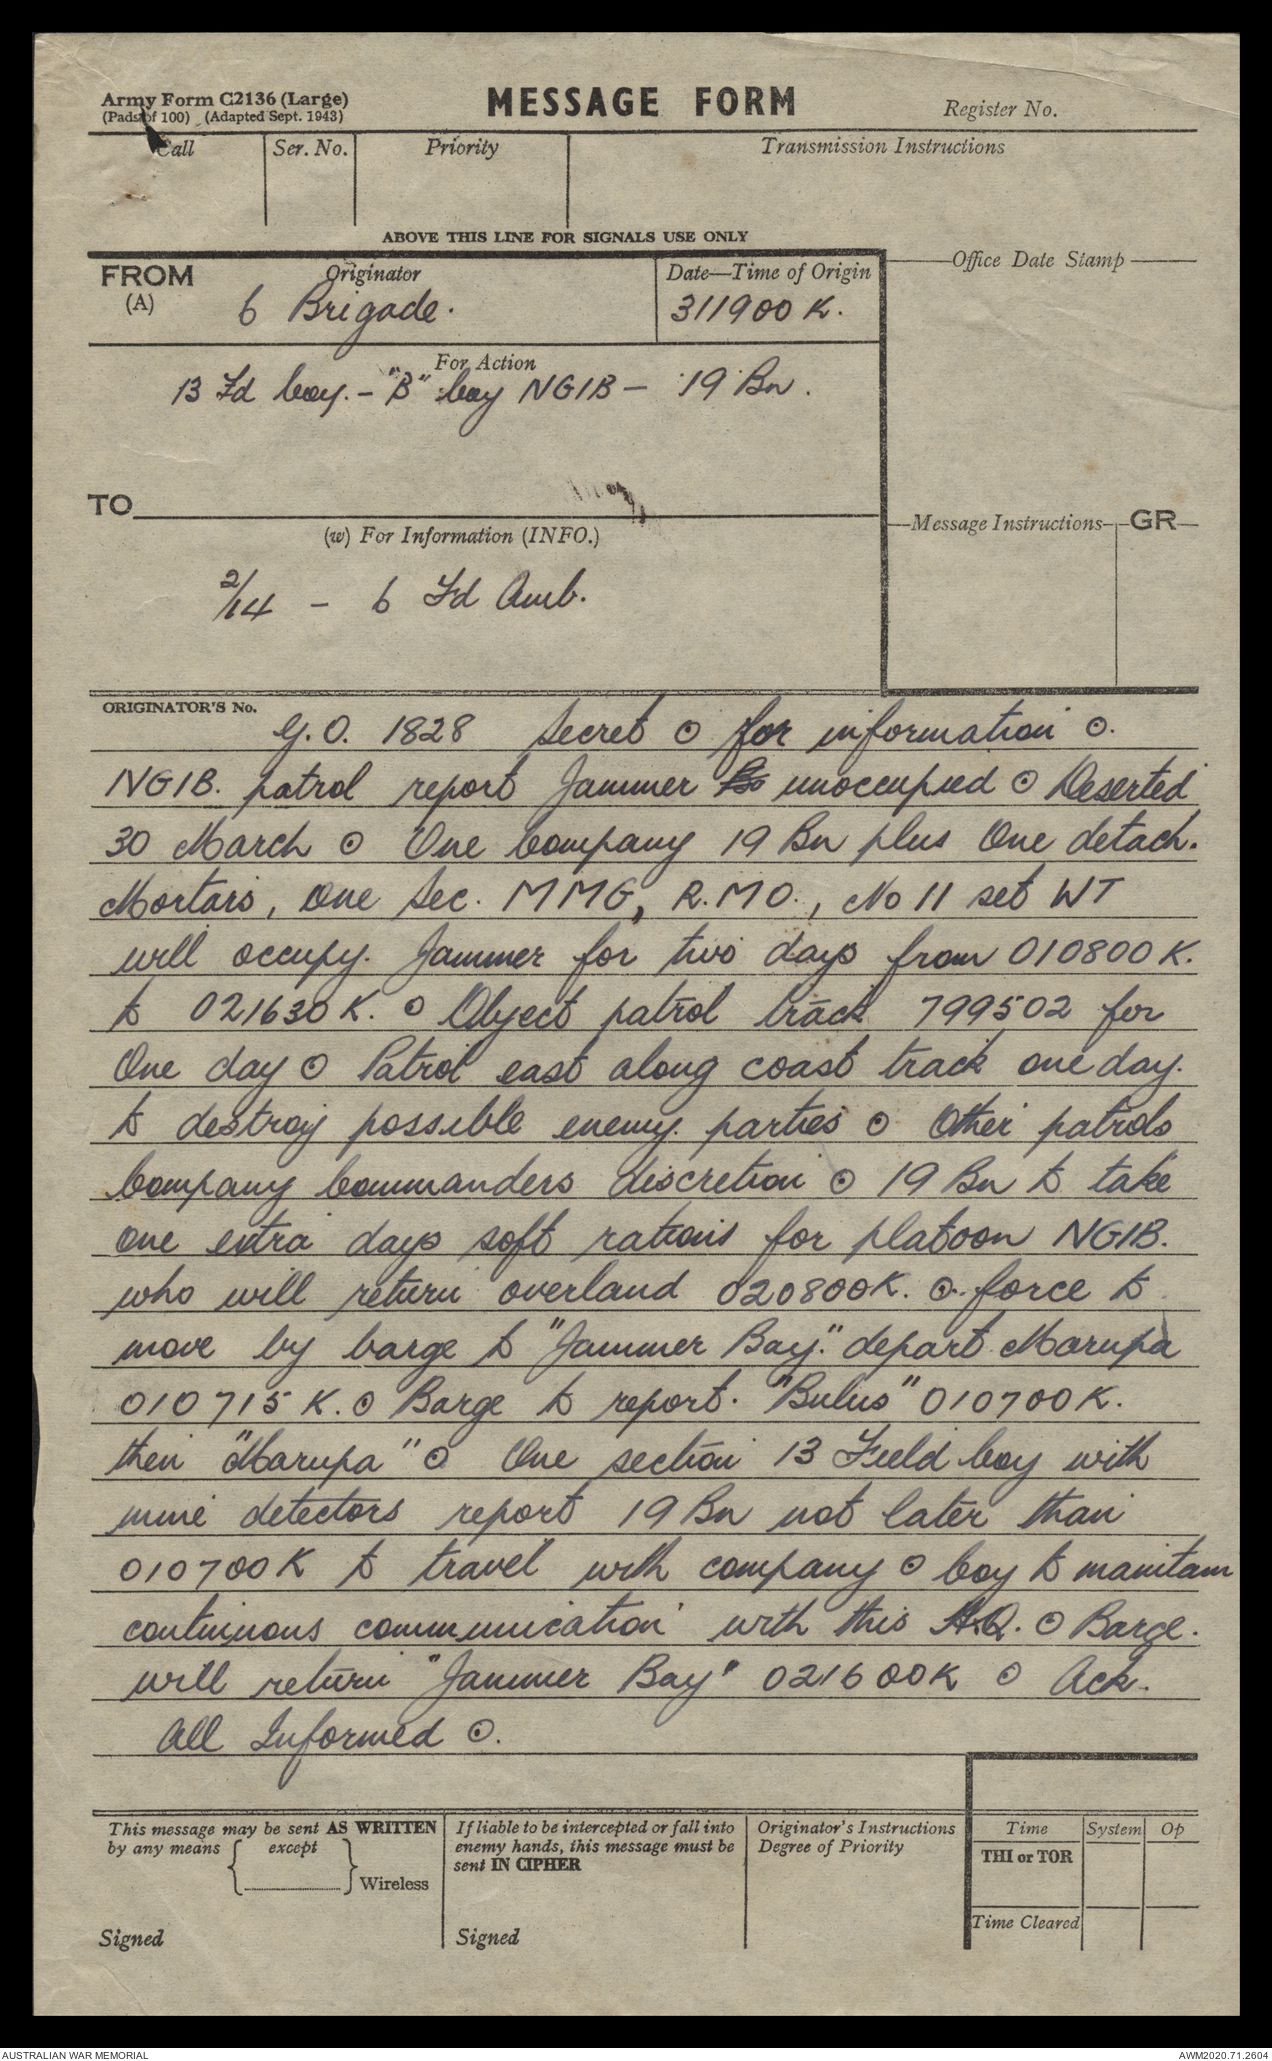 Army Form C2136 (Large)
(Pads of 100) (Adapted Sept. 1943)
MESSAGE FORM
Register No.
Call
Ser. No.
Priority
Transmission Instructions
ABOVE THIS LINE FOR SIGNALS USE ONLY
FROM
(A)
Originator
6 Brigade.
Date—Time of Origin
311900 K.
Office Date Stamp
For Action
13 Fd Coy. - "B" Coy NGIB - 19 Bn.
TO
(w) For Information (INFO.)
Message Instructions
GR
2/14 - 6 Fd Amb.
ORIGINATOR'S No.
G.O. 1828 Secret ⊙ for information ⊙.
NGIB. patrol report Jammer unoccupied ⊙ Deserted
30 March ⊙ One Company 19 Bn plus One detach.
Mortars, One Sec. MMG, R.M.O., No 11 set WT
will occupy. Jammer for two days from 010800 K.
to 021630 K. ⊙ Object patrol track 799502 for
One day ⊙ Patrol east along coast track one day.
to destroy possible enemy. parties ⊙ Other patrols
Company Commanders discretion ⊙ 19 Bn to take
one extra days soft rations for platoon NGIB.
who will return overland 020800K. ⊙. force to
move by barge to "Jammer Bay." depart Marupa
010715 K. ⊙ Barge to report. "Bulus" 010700 K.
then "Marupa" ⊙ One section 13 Field Coy with
mine detectors report 19 Bn not later than
010700 K to travel with company ⊙ Coy to manitain
continuous communication with this H.Q. ⊙ Barge.
will return "Jammer Bay" 021600K ⊙ Ack.
All Informed ⊙.
This message may be sent AS WRITTEN
by any means { except } Wireless
Signed
If liable to be intercepted or fall into
enemy hands, this message must be
sent IN CIPHER
Signed
Originator's Instructions
Degree of Priority
Time
System
Op
THI or TOR
Time Cleared
AUSTRALIAN WAR MEMORIAL
AWM2020.71.2604